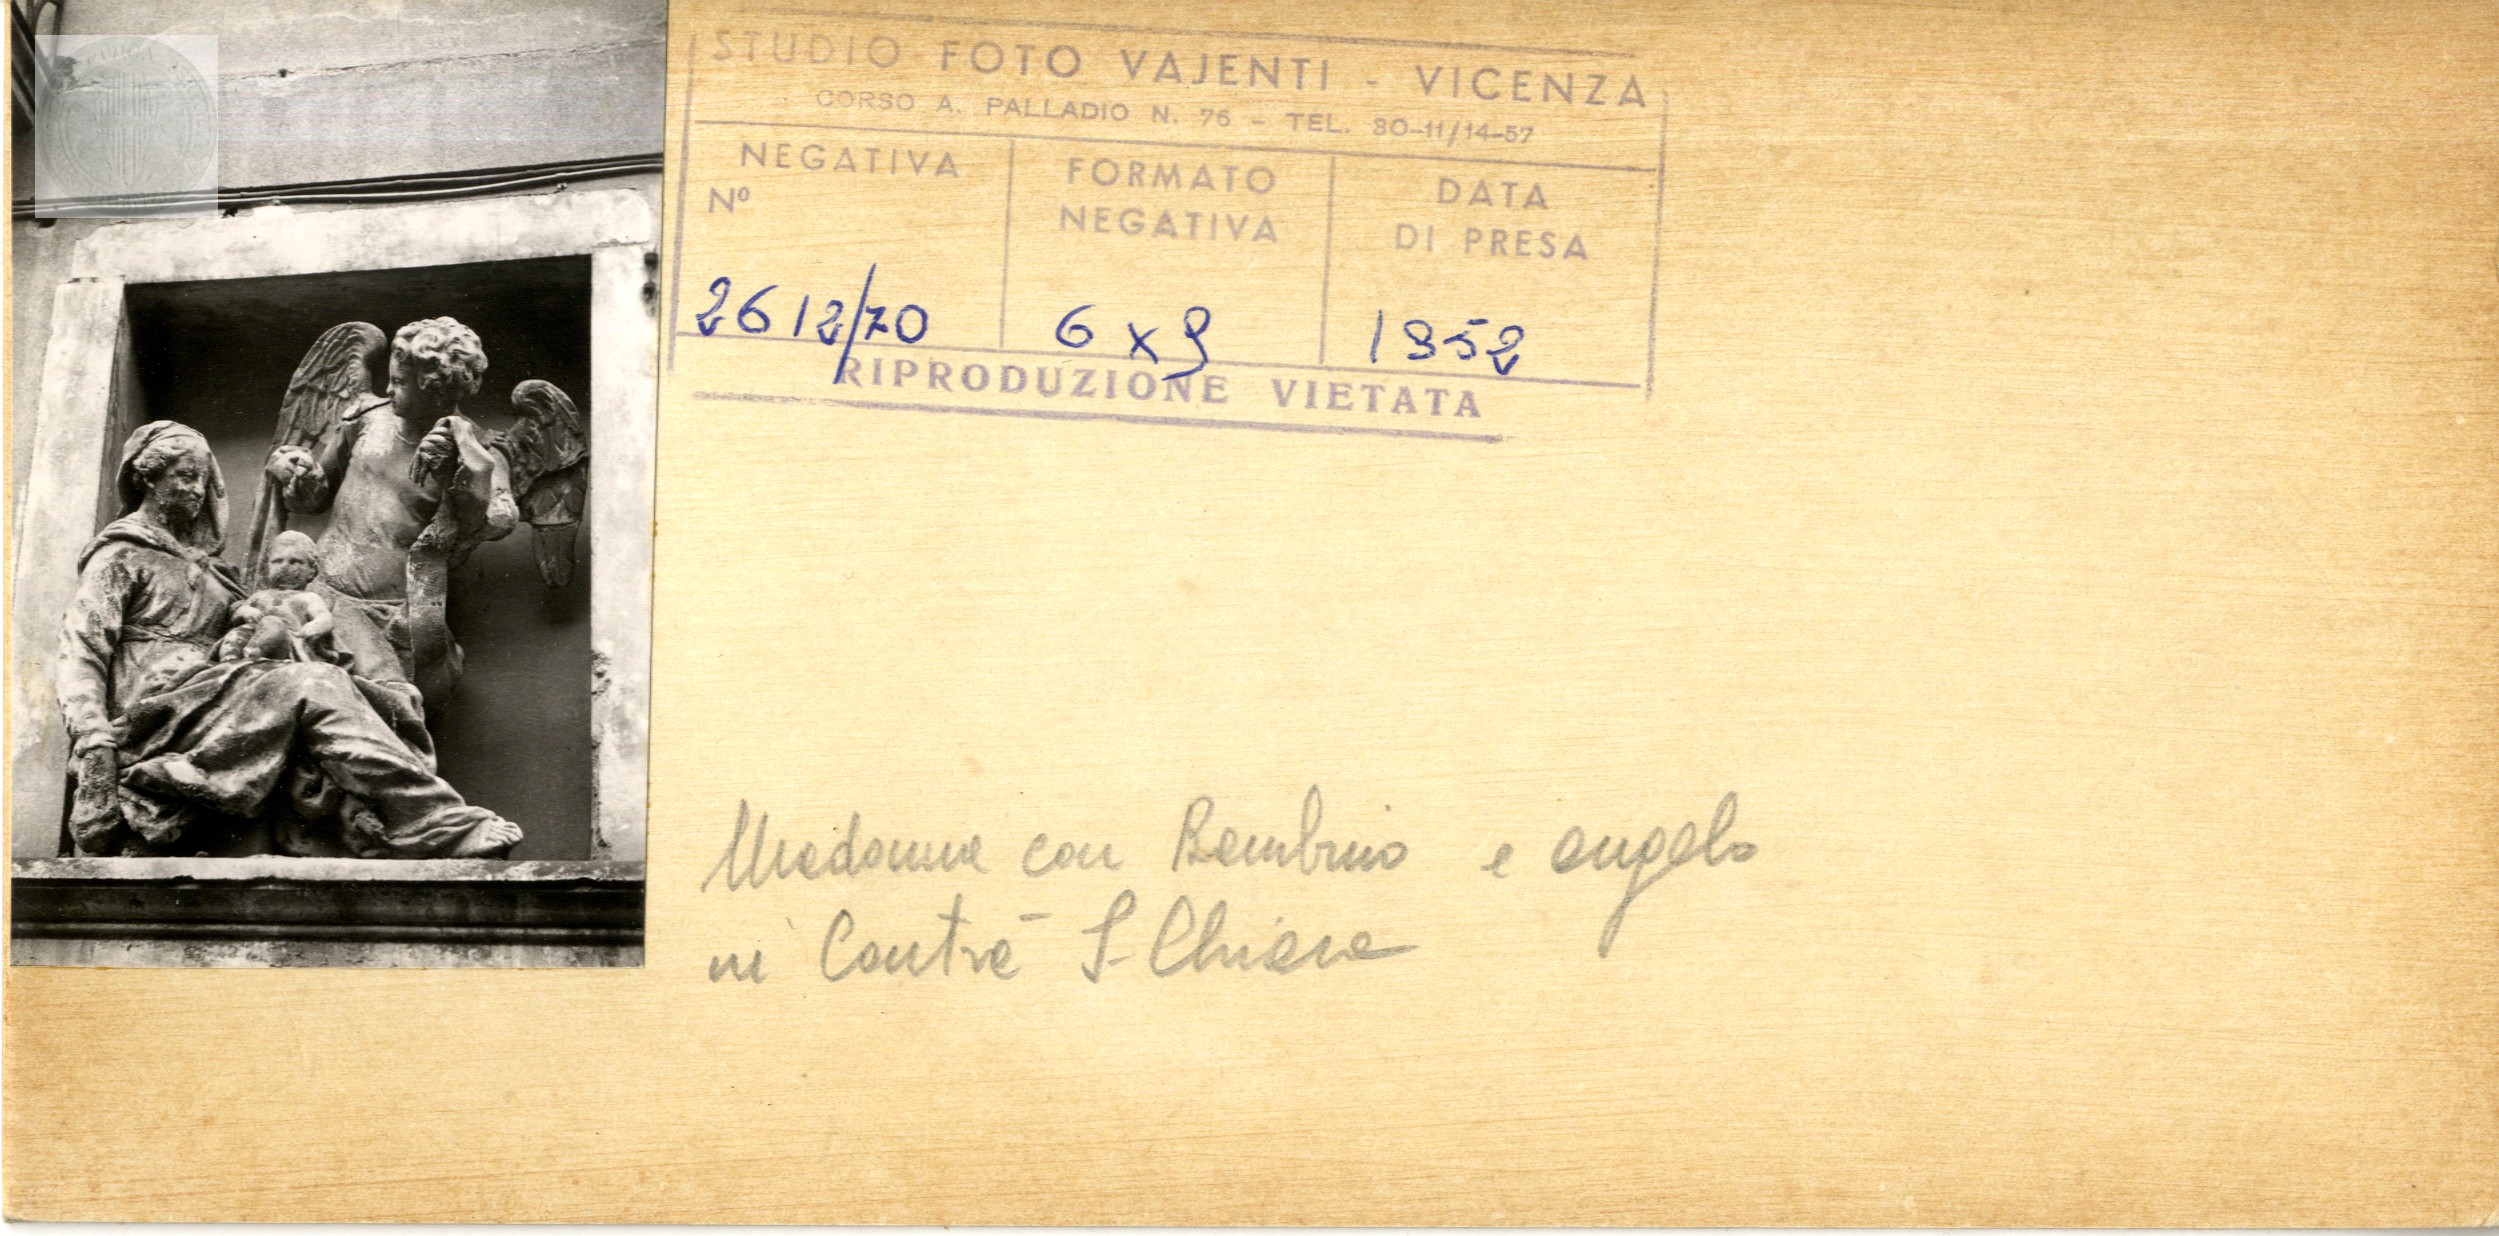 STUDIO FOTO VAJENTI - VICENZA
CORSO A. PALLADIO N. 76 - TEL. 30-11/14-57
NEGATIVA
Nº
2612/70
FORMATO
NEGATIVA
6 x 9
DATA
DI PRESA
1952
RIPRODUZIONE VIETATA
Madonna con Bambino e angelo
in Contrà S. Chiara